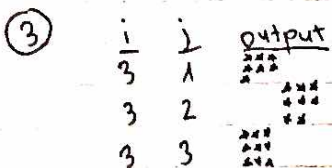 3 i j output
3 1 *** *** *
3 2 *** *** **
3 3 *** *** ***